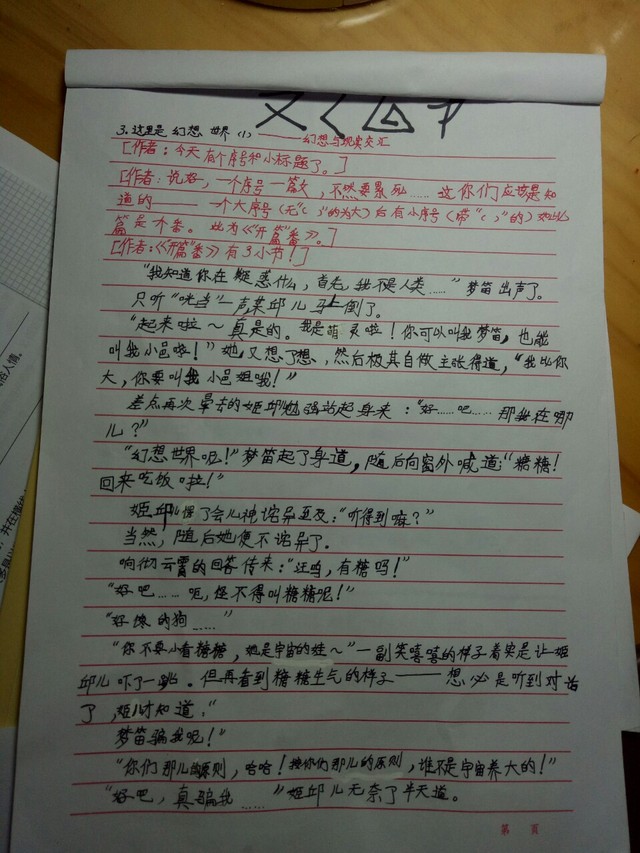 3.这里是幻想世界(1)———幻想与现实交汇
[作者:今天有个序号和小标题了。]
[作者:说好,一个序号一篇文,不然要累死……这你们应该是知
道的——一个大序号(无"()"的为大)后有小序号(带"()"的)如此
篇是本番。此为《"开篇"番》。]
[作者:《"开篇"番》有3小节!]
"我知道你在疑惑什么,首先,我不是人类……"梦笛出声了。
只听"咣当"一声某邱儿马上倒了。
"起来啦~真是的。我是萌灵啦!你可以叫我梦笛,也能
叫我小邑哦!"她又想了想,然后极其自做主张得道,"我比你
大,你要叫我小邑姐哦!"
差点再次晕去的姬邱勉强站起身来:"好……吧……那我在哪
儿?"
"幻想世界呢!"梦笛起了身道,随后向窗外喊道:"糖糖!
回来吃饭啦!"
姬邱儿愣了会儿神诧异至及:"听得到嘛?"
当然,随后她便不诧异了。
响彻云霄的回答传来:"汪呜,有糖吗!"
"好吧……呃,怪不得叫糖糖呢!"
"好馋的狗……"
"你不要小看糖糖,她是宇宙的娃~"一副笑嘻嘻的样子着实是让姬
邱儿吓了一跳。但再看到糖糖生气的样子——想必是听到对话
了,姬儿才知道,"
梦笛骗我呢!"
"你们那儿的原则,哈哈!按你们那儿的原则,谁不是宇宙养大的!"
"好吧,真骗我……"姬邱儿无奈了半天道。
第 页